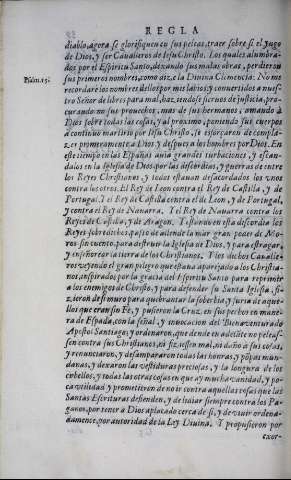 REGLA
diablo, agora se glorifiquen en sus pechos, traer sobre si el Iugo
de Dios, y ser Caualleros de Iesu Christo. Los quales alumbra-
dos por el Espiritu Santo, dexando sus malas obras, perdieron
sus primeros nombres, como dize la Diuina Clemencia: No me
Psalm. 15.
recordare los nombres dellos por mis labios; y conuertidos a nues-
tro Señor de libres para mal, haziendose sieruos de justicia, pro-
curando no sus prouechos, mas de sus hermanos, amando à
Dios sobre todas las cosas, y al proximo, poniendo sus cuerpos
à continuo martirio por Iesu Christo, se esforçaren de compla-
zer primeramente a Dios, y despues a los hombres por Dios. En
este tiempo en las Españas auia grandes turbaciones, y escan-
dalos en la Iglesia de Dios por las discordias, y guerras de entre
los Reyes Christianos, y todos estauan desacordados los vnos
contra los otros. El Rey de Leon contra el Rey de Castilla, y de
Portugal. Y el Rey de Castilla contra el de Leon, y de Portugal,
y contra el Rey de Nauarra. Y el Rey de Nauarra contra los
Reyes de Castilla, y de Aragon. Y estando en esta discordia los
Reyes sobredichos, passò de allende la mar gran poder de Mo-
ros sin cuento, para destruir la Iglesia de Dios, y para estragar,
y enseñorear la tierra de los Christianos. Y los dichos Caualle-
ros viendo el gran peligro que estaua aparejado a los Christia-
nos, inspirados por la gracia del Espiritu Santo para reprimir
a los enemigos de Christo, y para defender su Santa Iglesia, fi-
zieron de si muro para quebrantar la soberbia, y furia de aque-
llos que eran sin Fe, y pusieron la Cruz en sus pechos en mane-
ra de Espada, con la señal, y inuocacion del Bienauenturado
Apostol Santiago; y ordenaron, que dende en adelãte no peleas-
sen contra sus Christianos, ni fiziessen mal, ni daño à sus cosas,
y renunciaron, y desampararon todas las honras, y pompas mun-
danas, y dexaron las vestiduras preciosas, y la longura de los
cabellos, y todas las otras cosas en que ay mucha vanidad, y po-
ca vtilidad y prometieron de no ir contra aquellas cosas que las
Santas Escrituras defienden, y de lidiar siempre contra los Pa-
ganos, por tener a Dios aplacado cerca de si, y de viuir ordena-
damente, por autoridad de la Ley Diuina. Y propusieron por